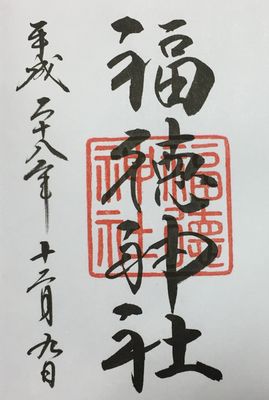 福徳神社
平成二十八年 十二月九日
福徳
神社